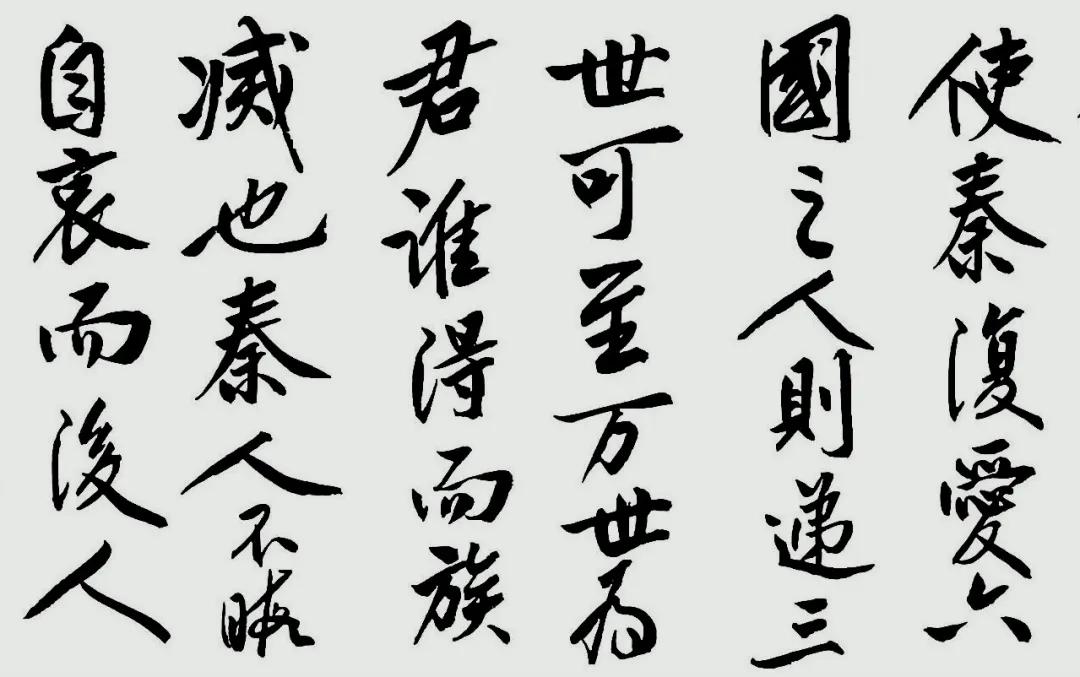 使秦復愛六
國之人則递三
世可至万世為
君誰得而族
滅也秦人不暇
自哀而後人